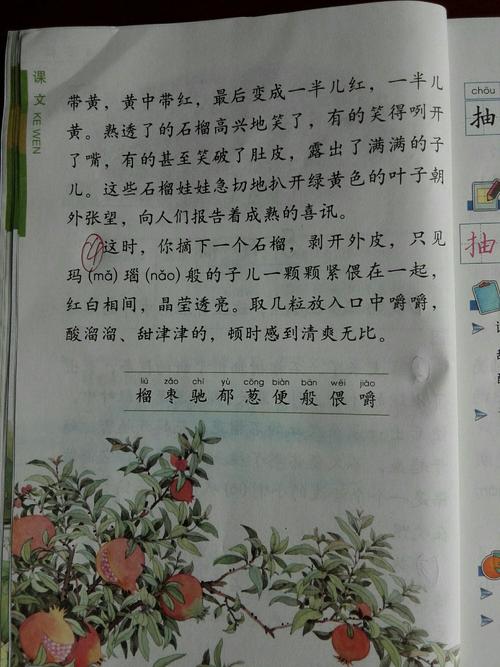 课文 KE WEN
带黄，黄中带红，最后变成一半儿红，一半儿
黄。熟透了的石榴高兴地笑了，有的笑得咧开
了嘴，有的甚至笑破了肚皮，露出了满满的子
儿。这些石榴娃娃急切地扒开绿黄色的叶子朝
外张望，向人们报告着成熟的喜讯。
④这时，你摘下一个石榴，剥开外皮，只见
玛(mǎ)瑙(nǎo)般的子儿一颗颗紧偎在一起，
红白相间，晶莹透亮。取几粒放入口中嚼嚼，
酸溜溜、甜津津的，顿时感到清爽无比。
liú zǎo chí yù cōng biàn bān wēi jiáo
榴 枣 驰 郁 葱 便 般 偎 嚼
chōu
抽
抽